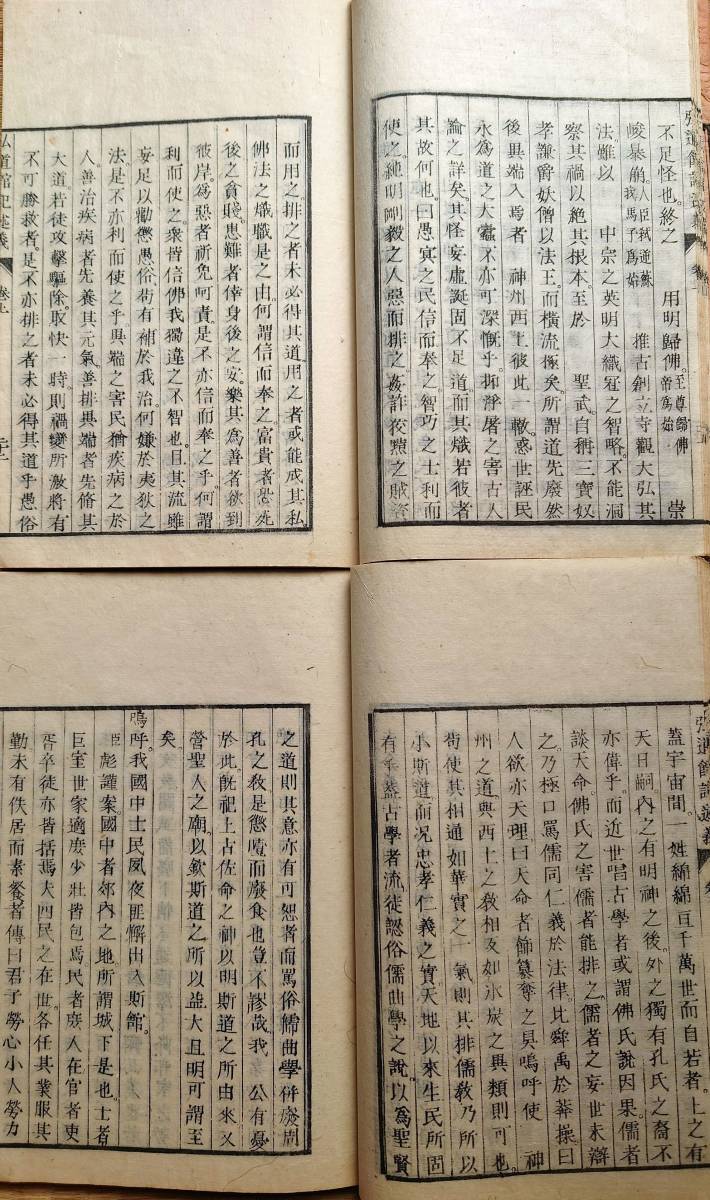 弘道館記述義 卷上
不足怪也。終之　用明歸佛。至尊歸佛帝爲始　崇
峻暴崩。人臣弑逆蘇我馬子爲始　推古創立寺觀大弘其
法。雖以　中宗之英明大織冠之智略。不能洞
察其禍以絶其根本。至於　聖武。自稱三寶奴
孝謙爵妖僧以法王。而橫流極矣。所謂道先廢然
後異端入焉者　神州西土彼此一轍。惑世誣民
永爲道之大蠹。不亦可深慨乎。抑浮屠之害古人
論之詳矣。其怪妄虛誕固不足道。而其熾若彼者
其故何也。曰愚冥之民信而奉之。智巧之士利而
使之。純明剛毅之人惡而排之。姦詐狡黠之賊資
而用之。排之者未必得其道。用之者或能成其私
佛法之熾職是之由。何謂信而奉之。富貴者恐死
後之貧賤。患難者倖身後之安樂。其爲善者欲到
彼岸。爲惡者祈免呵責。是不亦信而奉之乎。何謂
利而使之。衆皆信佛我獨違之不智也。且其流雖
妄足以勸懲愚俗。苟有補於我治。何嫌於夷狄之
法。是不亦利而使之乎。異端之害民猶疾病之於
人。善治疾病者先養其元氣。善排異端者先脩其
大道。若徒攻擊驅除。取快一時則禍變所激將有
不可勝救者。是不亦排之者未必得其道乎。愚俗
弘道館記述義 卷上
弘道館記述義
蓋宇宙間。一姓綿綿亘千萬世而自若者。上之有
天日嗣。內之有明神之後。外之獨有孔氏之裔。不
亦偉乎。而近世唱古學者或謂佛氏說因果。儒者
談天命。佛氏之害儒者能排之。儒者之妄世未辯
之。乃極口罵儒同仁義於法律。比舜禹於莽操。曰
人欲亦天理。曰天命者飾簒奪之具。嗚呼使　神
州之道與西土之教相反如氷炭之異類則可也。
苟使其相通如華實之一氣則其排儒教乃所以
小斯道。而況忠孝仁義之實。天地以來生民所固
有乎。蓋古學者流。徒認俗儒曲學之說。以爲聖賢
之道則其意亦有可恕者。而罵俗儒曲學併廢周
孔之教是懲噎而廢食也。豈不謬哉。我　公有憂
於此。旣祀上古佐命之神以明斯道之所由來。又
營聖人之廟。以欽斯道之所以益大且明。可謂至
矣。
嗚呼。我國中士民夙夜匪懈出入斯館。
臣彪謹案。國中者郊內之地所謂城下是也。士者
巨室世家適庶少壯皆包焉。民者庶人在官者吏
胥卒徒亦皆括焉。夫四民之在世各任其業服其
勤未有佚居而素餐者。傳曰君子勞心小人勞力